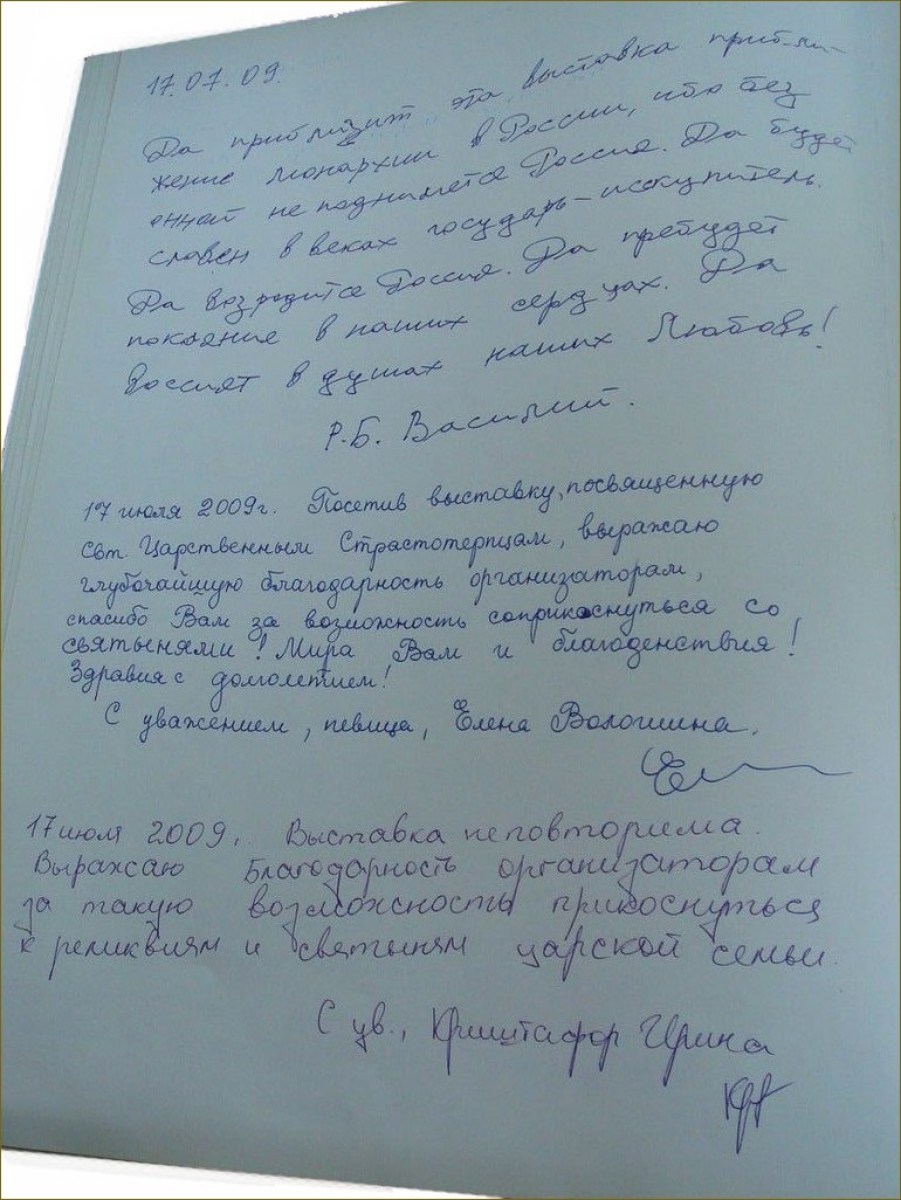 17.07.09.
Да приблизит эта выставка прибли-
жение монархии в России, ибо без
онной не поднимется Россия. Да будет
славен в веках государь-искупитель.
Да возродится Россия. Да пребудет
покаяние в наших сердцах. Да
воссият в душах наших Любовь!
Р.Б. Василий.
17 июля 2009г. Посетив выставку, посвященную
Свт. Царственным Страстотерпцам, выражаю
глубочайшую благодарность организаторам,
спасибо Вам за возможность соприкоснуться со
святынями! Мира Вам и благоденствия!
Здравия с долголетием!
С уважением, певица, Елена Волошина.
17 июля 2009г. Выставка неповторима.
Выражаю благодарность организаторам
за такую возможность прикоснуться
к реликвиям и святыням царской семьи.
С ув., Криштафор Ирина